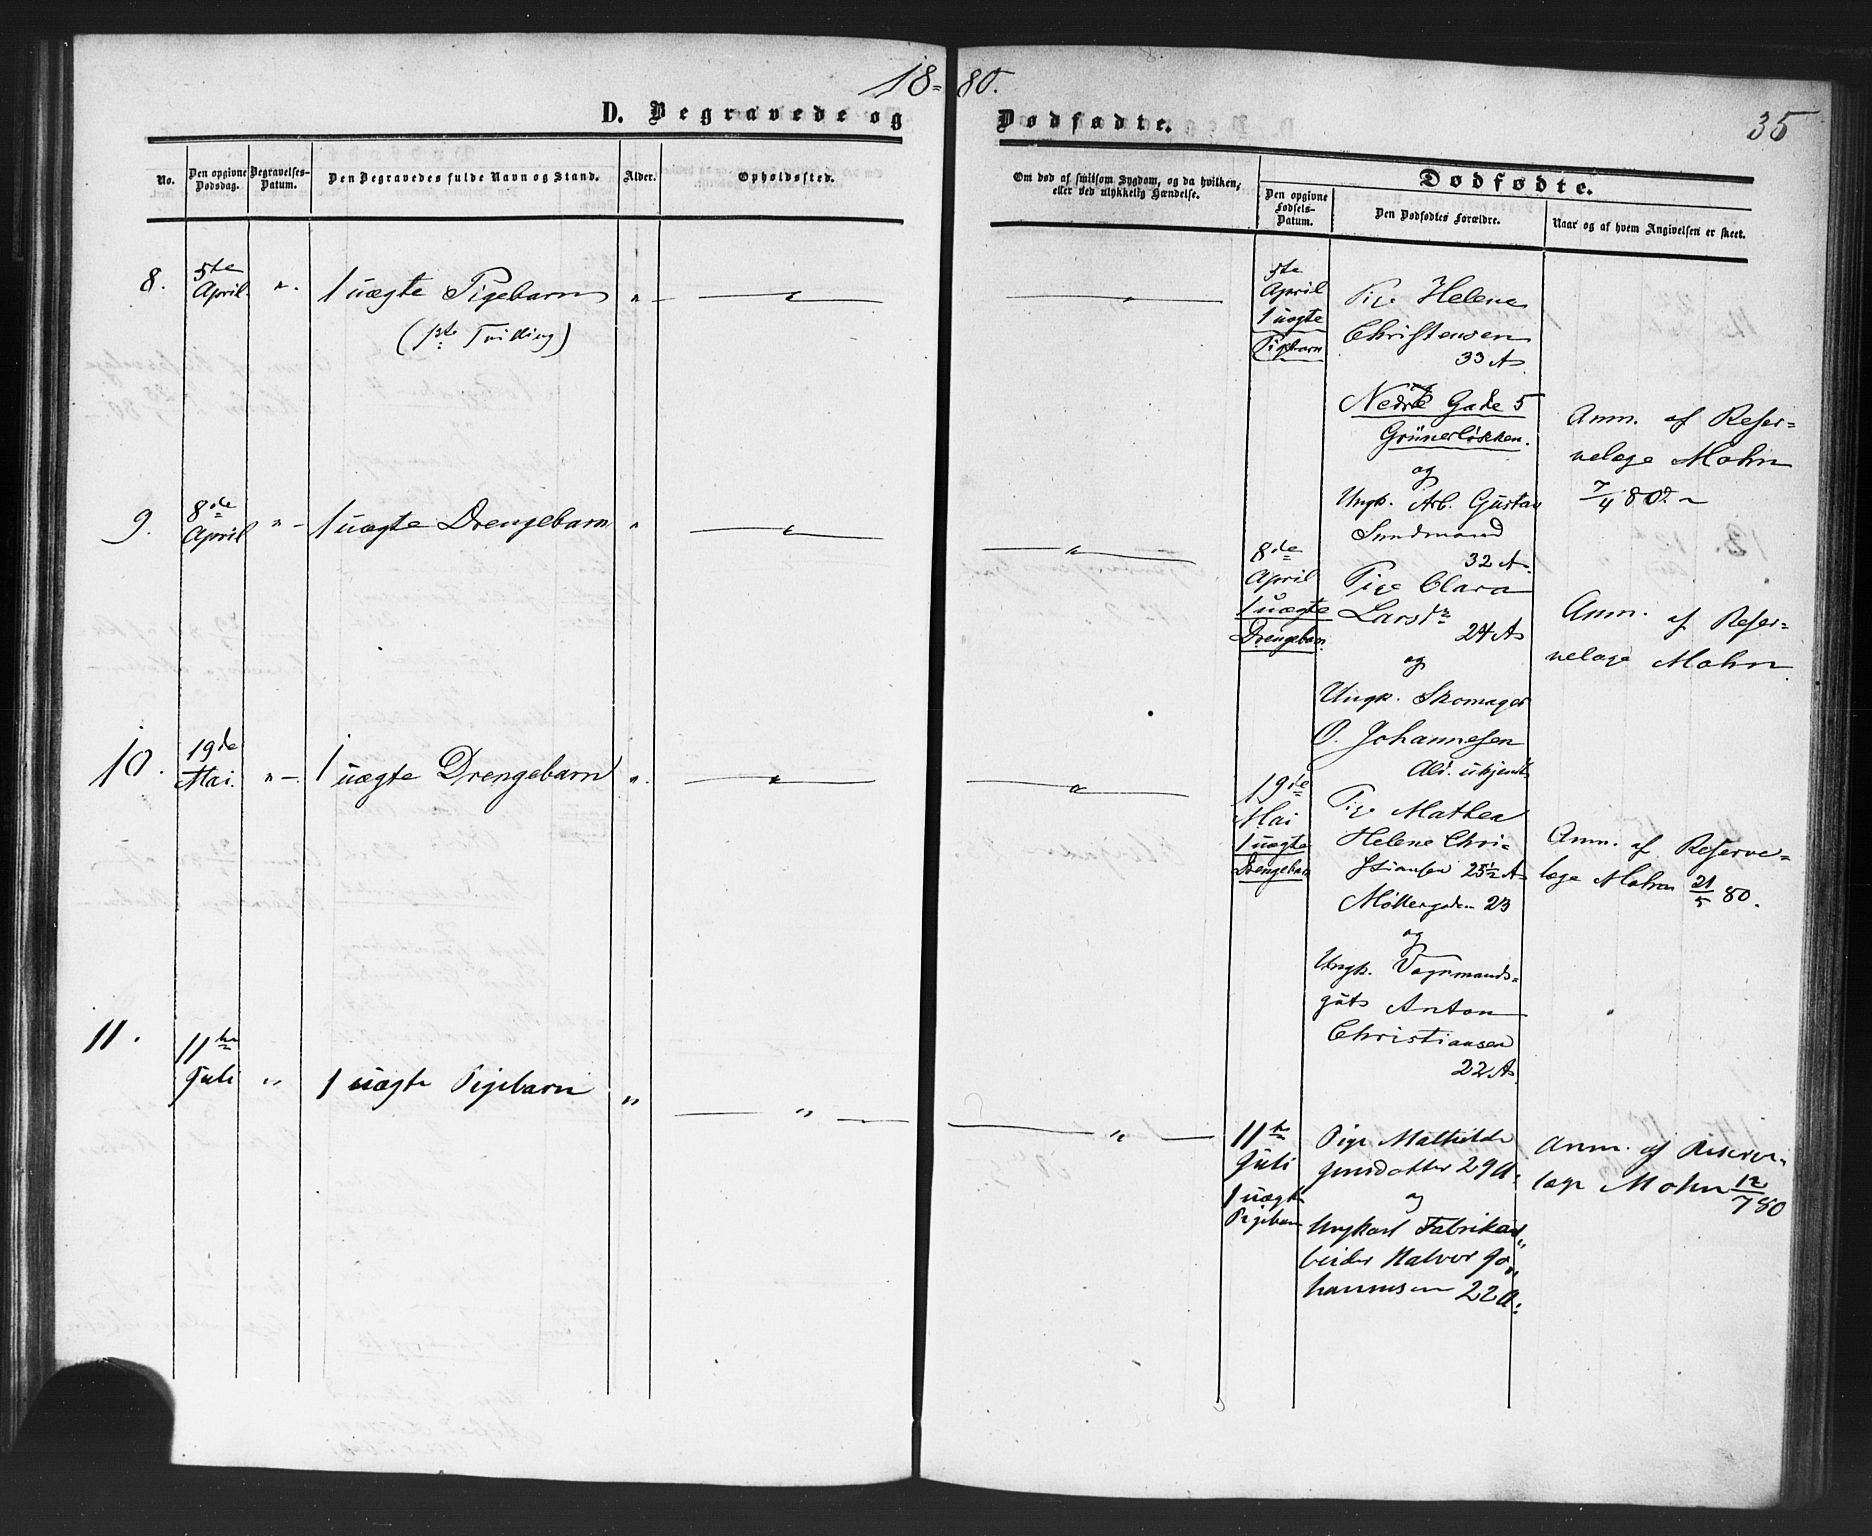 18=80.
35
D. Begravede og Dødfødte.
No.
Den opgivne Dødsdag.
Begravelses-Datum.
Den Begravedes fulde Navn og Stand.
Alder.
Opholdssted.
Om død af smitsom Sygdom, og da hvilken,
eller ved ulykkelig Hændelse.
Dødfødte.
Den opgivne Fødsels-Datum.
Den Dødfødtes Forældre.
Naar og af hvem Angivelsen er skeet.
8.
5te
April
"
1 uægte Pigebarn
(1ste Tvilling)
"
"
"
5te
April
1 uægte
Pigebarn
Pige Helene
Christensen
33 A
Nedre Gade 5
Grünerløkken.
og
Ungk. Arb. Gustav
Sundmand
32 A.
Anm. af Reser=
velæge Mohn
7/4 80.
9.
8de
April
"
1 uægte Drengebarn
"
"
"
8de
April
1 uægte
Drengebarn
Pige Clara
Larsdr
24 A
og
Ungk. Skomager
O. Johannesen
Ald. ukjendt
Anm. af Reser=
velæge Mohn
10.
19de
Mai.
"
1 uægte Drengebarn
"
"
"
19de
Mai
1 uægte
Drengebarn
Pige Mathea
Helene Chri=
stiansen 25 1/2 A
Møllergaden 23
og
Ungk. Vognmands=
gut Anton
Christiansen
22 A.
Anm. af Reserve=
læge Mohn 21/5 80.
11.
11te
Juli
"
1 uægte Pigebarn
"
"
"
11te
Juli
1 uægte
Pigebarn
Pige Mathilde
Jensdatter 29 A.
og
Ungkarl Fabrikar„
beider Halvor Jo„
hannesen 22 A:
Anm. af Reserve=
læge Mohn 12/7 80